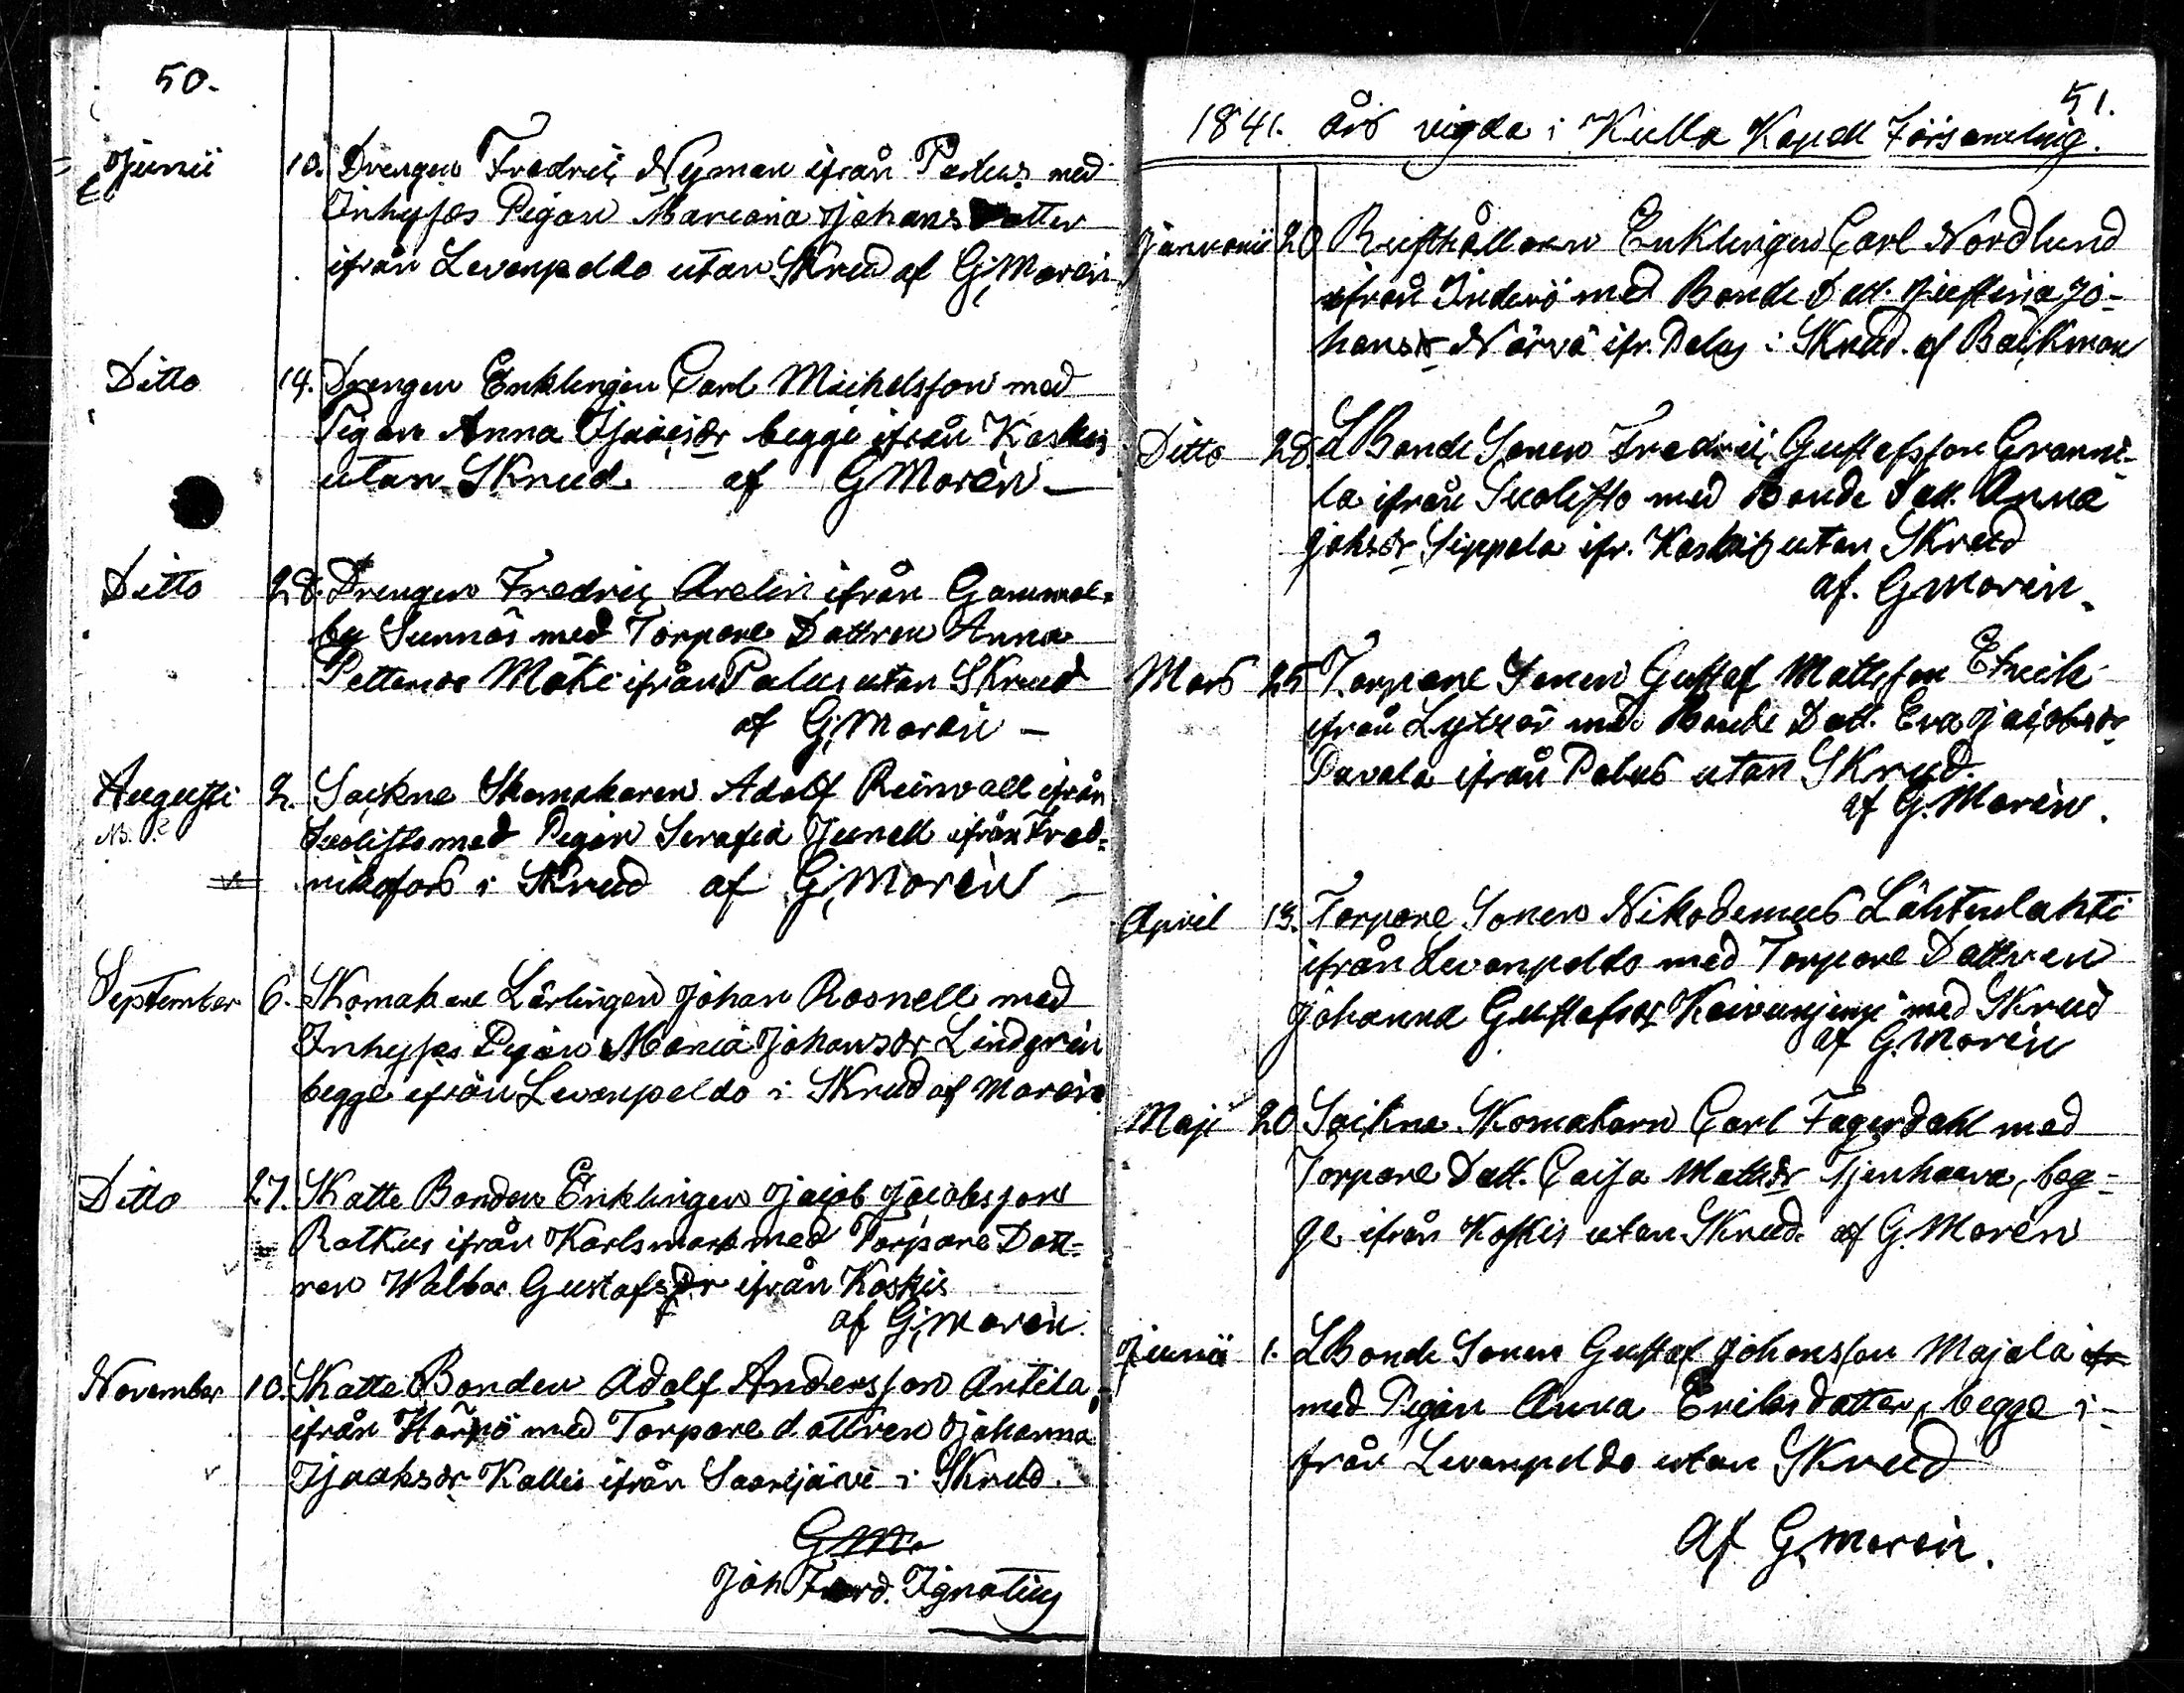 50.
Junii 10. Drengen Fredric Nyman ifrån Palus med
Inhyses Pigan Mariana Johans Dotter
ifrån Levanpeldo utan Skrud af G. Moren
Ditto 14. Drengen Enklingen Carl Michelsson med
Pigan Anna Isacsdr begge ifrån Koskis
utan Skrud af G Moren
Ditto 28. Drengen Fredric Arelin ifrån Gammel-
by Sunnäs med Torpare Dottren Anna
Mäki ifrån Palus utan Skrud
af G. Moren
Augusti 2. Sockne Skomakaren Adolf Reinvall ifrån
med Pigan Serafia Junell ifrån Fred-
riksfors i Skrud af G. Moren
September 6. Skomakare Lärlingen Johan Rosnell med
Inhyses Pigan Maria Johansdr Lindgren
begge ifrån Levanpeldo i Skrud af Moren
Ditto 27. Skatte Bonden Enklingen Jacob Jacobsson
Ratkus ifrån Karlsmark med Torpare Dott-
ren Walbor Gustafsdr ifrån Koskis
af G. Moren.
November 10. Skatte Bonden Adolf Andersson Antila,
ifrån Harjo med Torpare dottren Johanna
Isaksdr Kallis ifrån Saarijärvi i Skrud.
G M
Joh Ferd. Ignatius
51.
1841. års vigda i Kulla Kapell Församling.
Januarii 20 Rusthållaren Enklingen Carl Nordlund
ifrån Inderö med Bonde Dott. Justina Jo-
hansdr Närvä ifr. Palus i Skrud. af Backman
Ditto 28. L Bonde Sonen Fredric Gustafsson Granni-
la ifrån med Bonde Dott. Anna
Johsdr Sippola ifr. Koskis utan Skrud
af. G Moren.
Mars 25 Torpare Sonen Gustaf Mattsson
ifrån Lytsor med Bonde Dott. Eva Jacobsdr
Pavala ifrån Palus utan Skrud.
af G. Moren.
April 13. Torpare Sonen Nikodemus Lähtenlahti
ifrån Levanpeldo med Torpare Dottren
Johanna Gustafsdr Koivuniemi med Skrud
af G. Moren
Maji 20 Sockne Skomakarn Carl Fagerdahl med
Torpare Dott. Caisa Mattsdr beg-
ge ifrån Koskis utan Skrud af G. Moren
Junii 1. L Bonde Sonen Gustaf Johansson Majala ifr
med Pigan Anna Eriksdotter, begge i-
från Levanpeldo utan Skrud
af G. Moren.